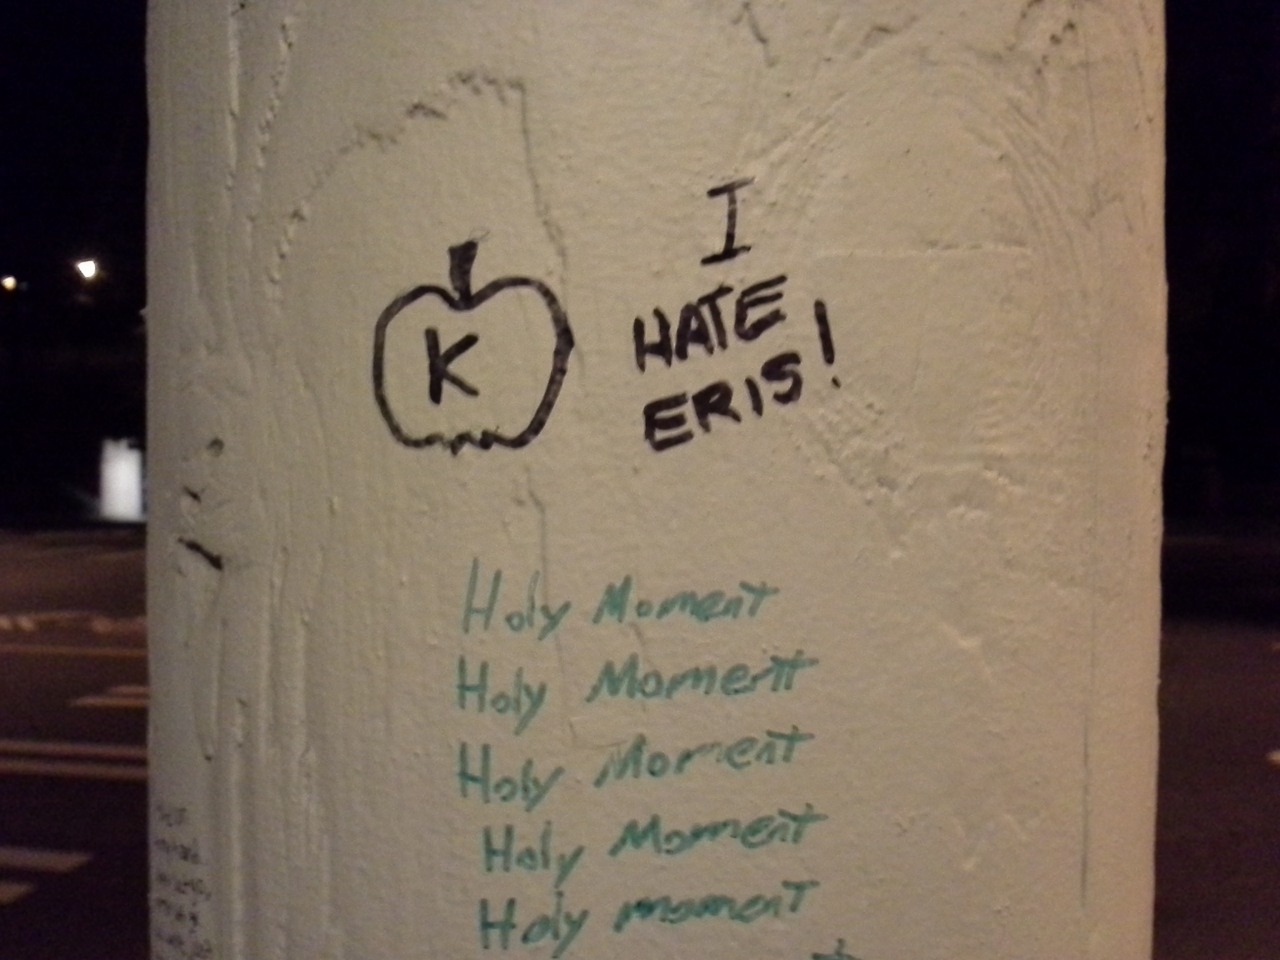 K
I
HATE
ERIS!
Holy Moment
Holy Moment
Holy Moment
Holy Moment
Holy moment